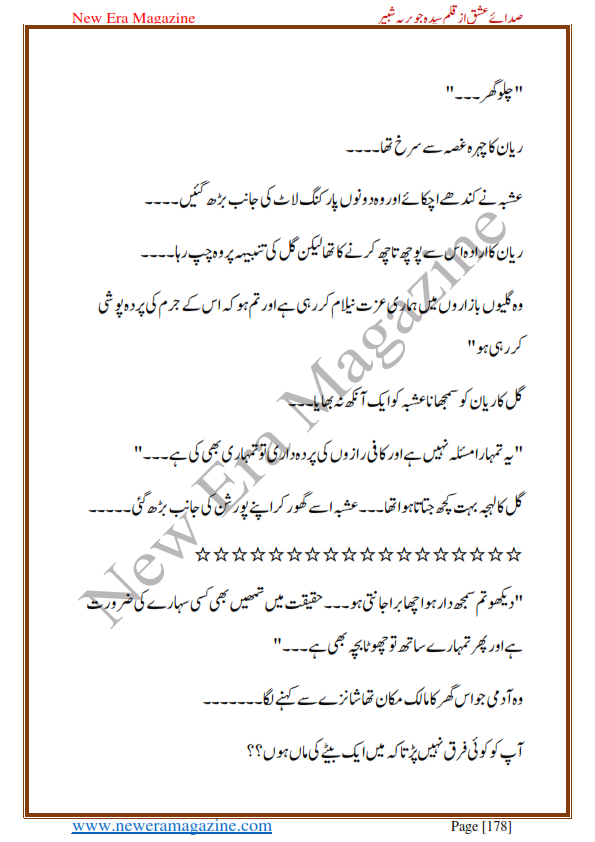 New Era Magazine
صدائے عشق از قلم سیدہ جویریہ شبیر
"چلو گھر۔۔۔"
ریان کا چہرہ غصہ سے سرخ تھا۔۔۔۔
عشبہ نے کندھے اچکائے اور وہ دونوں پارکنگ لاٹ کی جانب بڑھ گئیں۔۔۔۔
ریان کا ارادہ اس سے پوچھ تاچھ کرنے کا تھا لیکن گل کی تنبیہہ پر وہ چپ رہا۔۔۔۔
وہ گلیوں بازاروں میں ہماری عزت نیلام کر رہی ہے اور تم ہو کہ اس کے جرم کی پردہ پوشی
کر رہی ہو"
گل کا ریان کو سمجھانا عشبہ کو ایک آنکھ نہ بھایا۔۔۔
"یہ تمہارا مسئلہ نہیں ہے اور کافی رازوں کی پردہ داری تو تمہاری بھی کی ہے۔۔۔"
گل کا لہجہ بہت کچھ جتاتا ہوا تھا۔۔۔ عشبہ اسے گھور کر اپنے پورشن کی جانب بڑھ گئی۔۔۔۔۔
☆☆☆☆☆☆☆☆☆☆☆☆☆☆☆☆☆☆
"دیکھو تم سمجھ دار ہو اچھا برا جانتی ہو۔۔۔ حقیقت میں تمھیں بھی کسی سہارے کی ضرورت
ہے اور پھر تمہارے ساتھ تو چھوٹا بچہ بھی ہے۔۔۔"
وہ آدمی جو اس گھر کا مالک مکان تھا شانزے سے کہنے لگا۔۔۔۔۔۔۔
آپ کو کوئی فرق نہیں پڑتا کہ میں ایک بیٹے کی ماں ہوں؟؟
New Era Magazine
www.neweramagazine.com
Page [178]